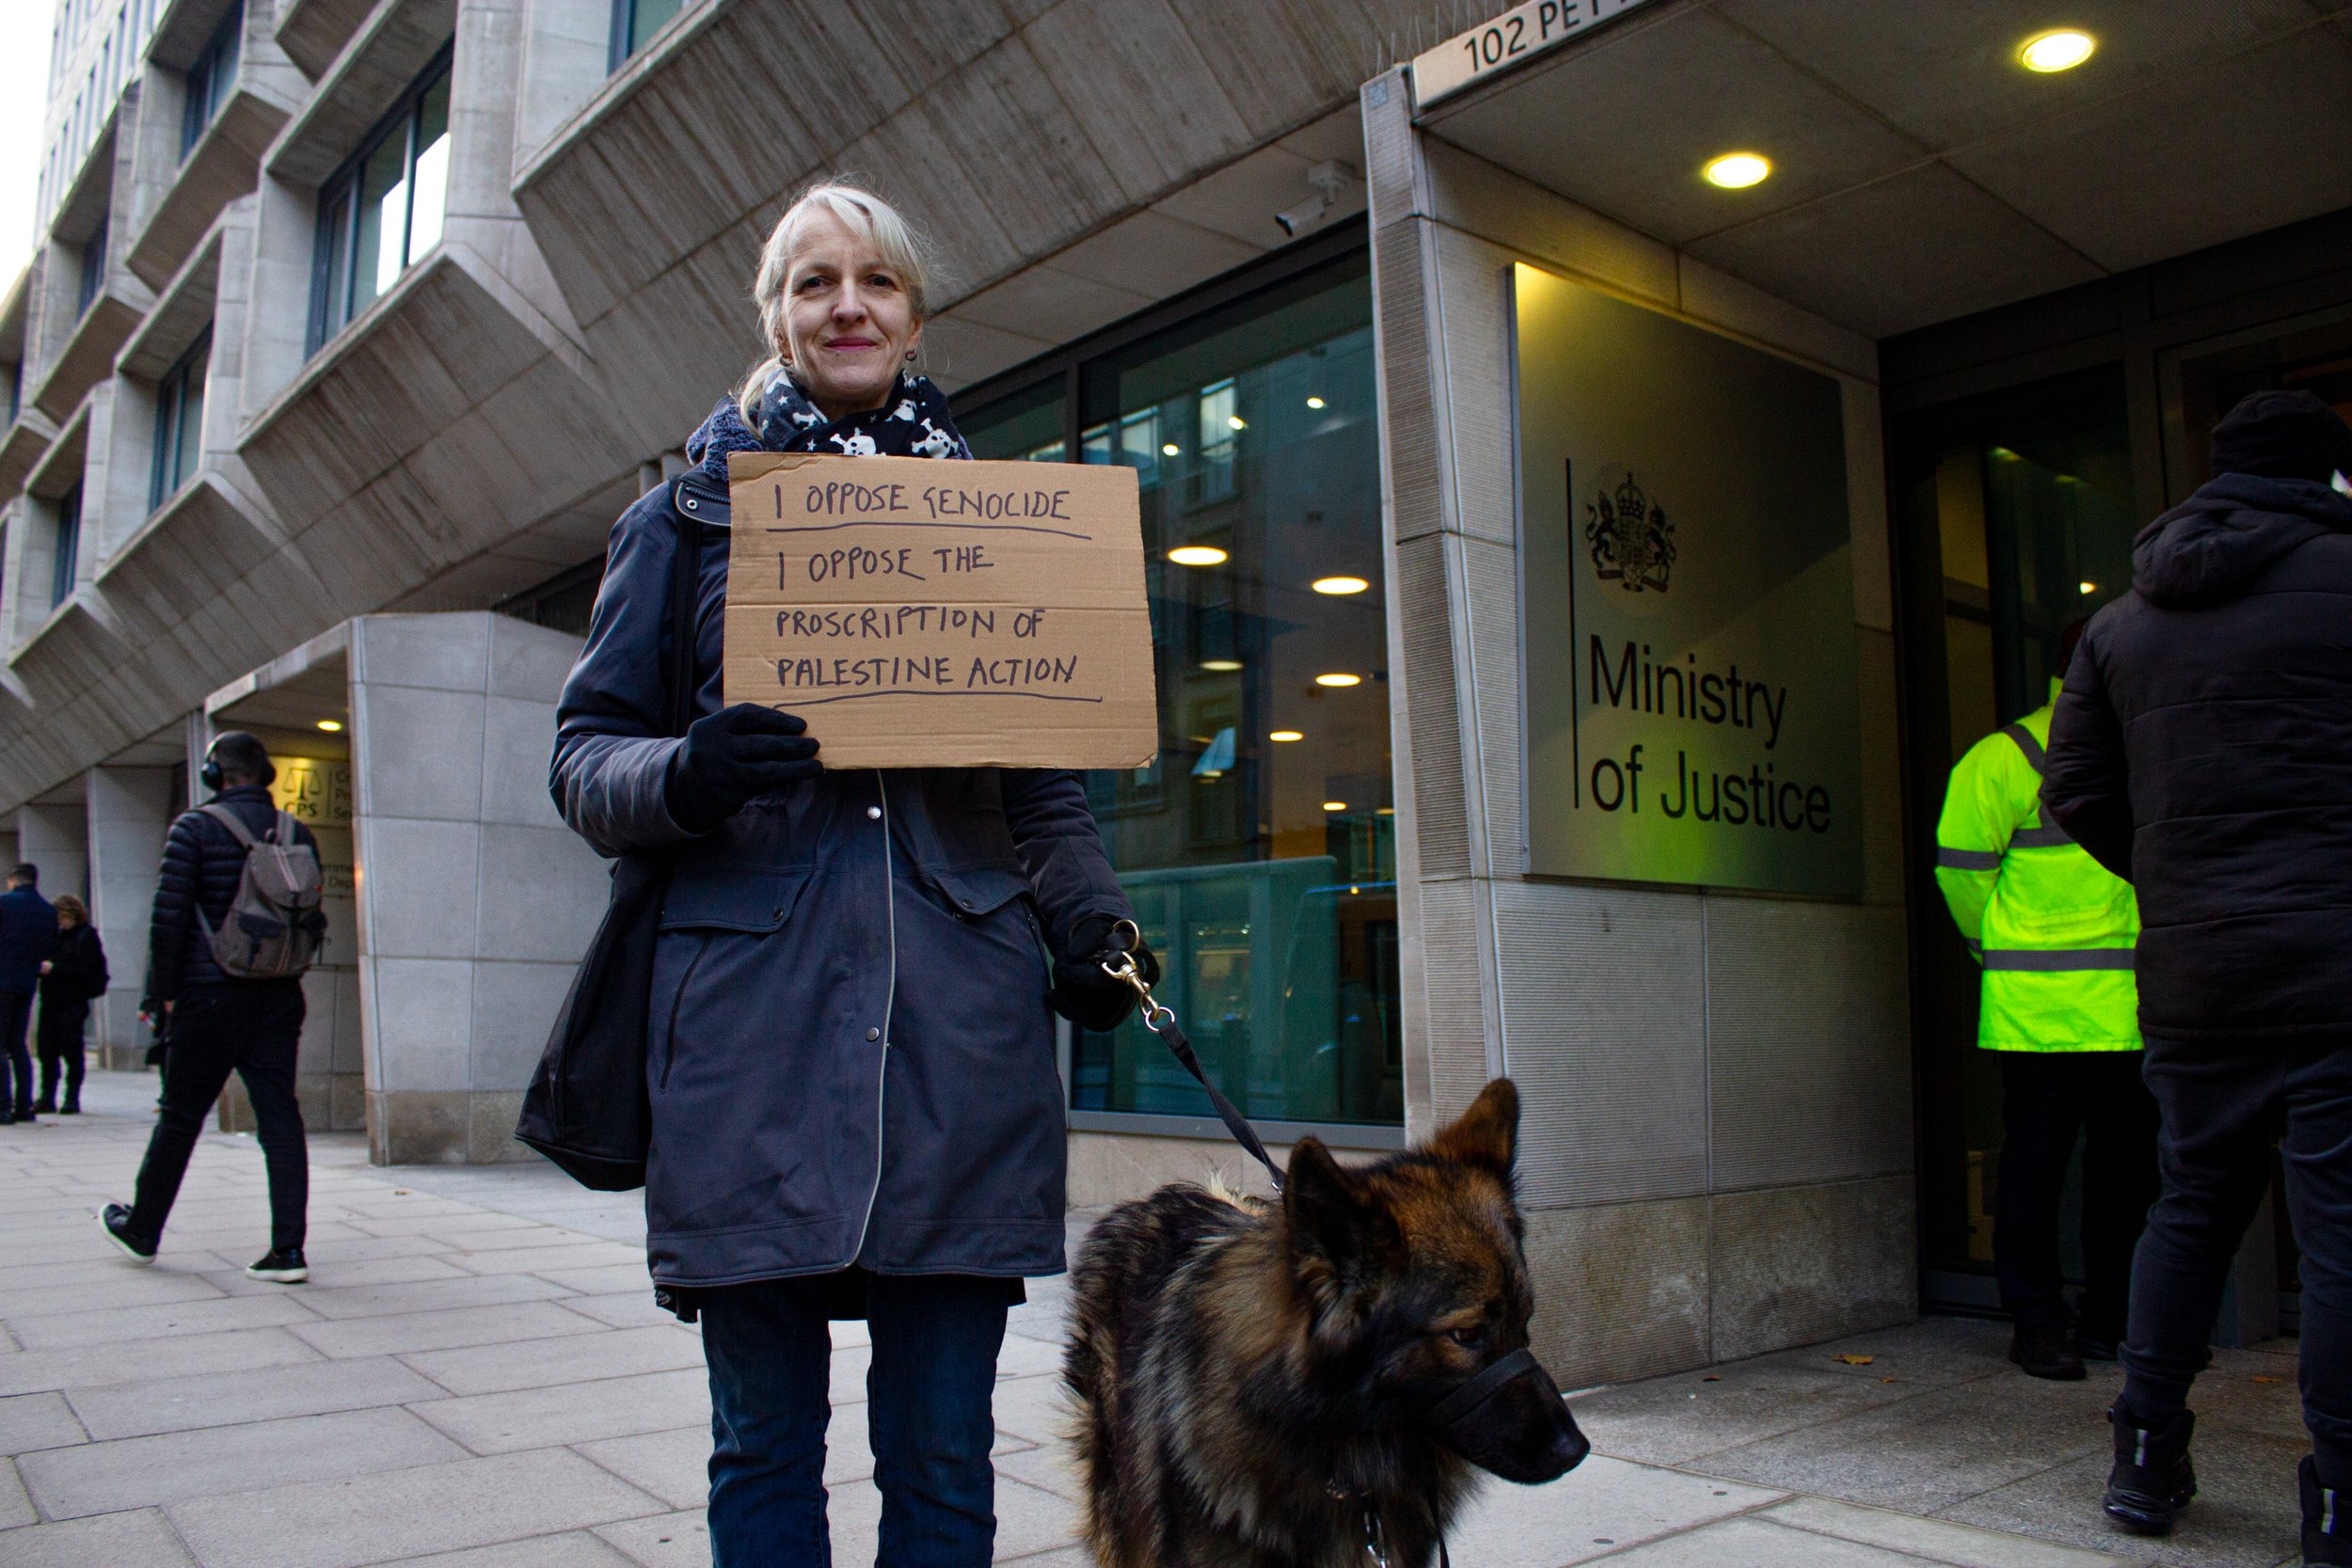 102 PE
I OPPOSE GENOCIDE
I OPPOSE THE
PROSCRIPTION OF
PALESTINE ACTION
Ministry
of Justice
CPS